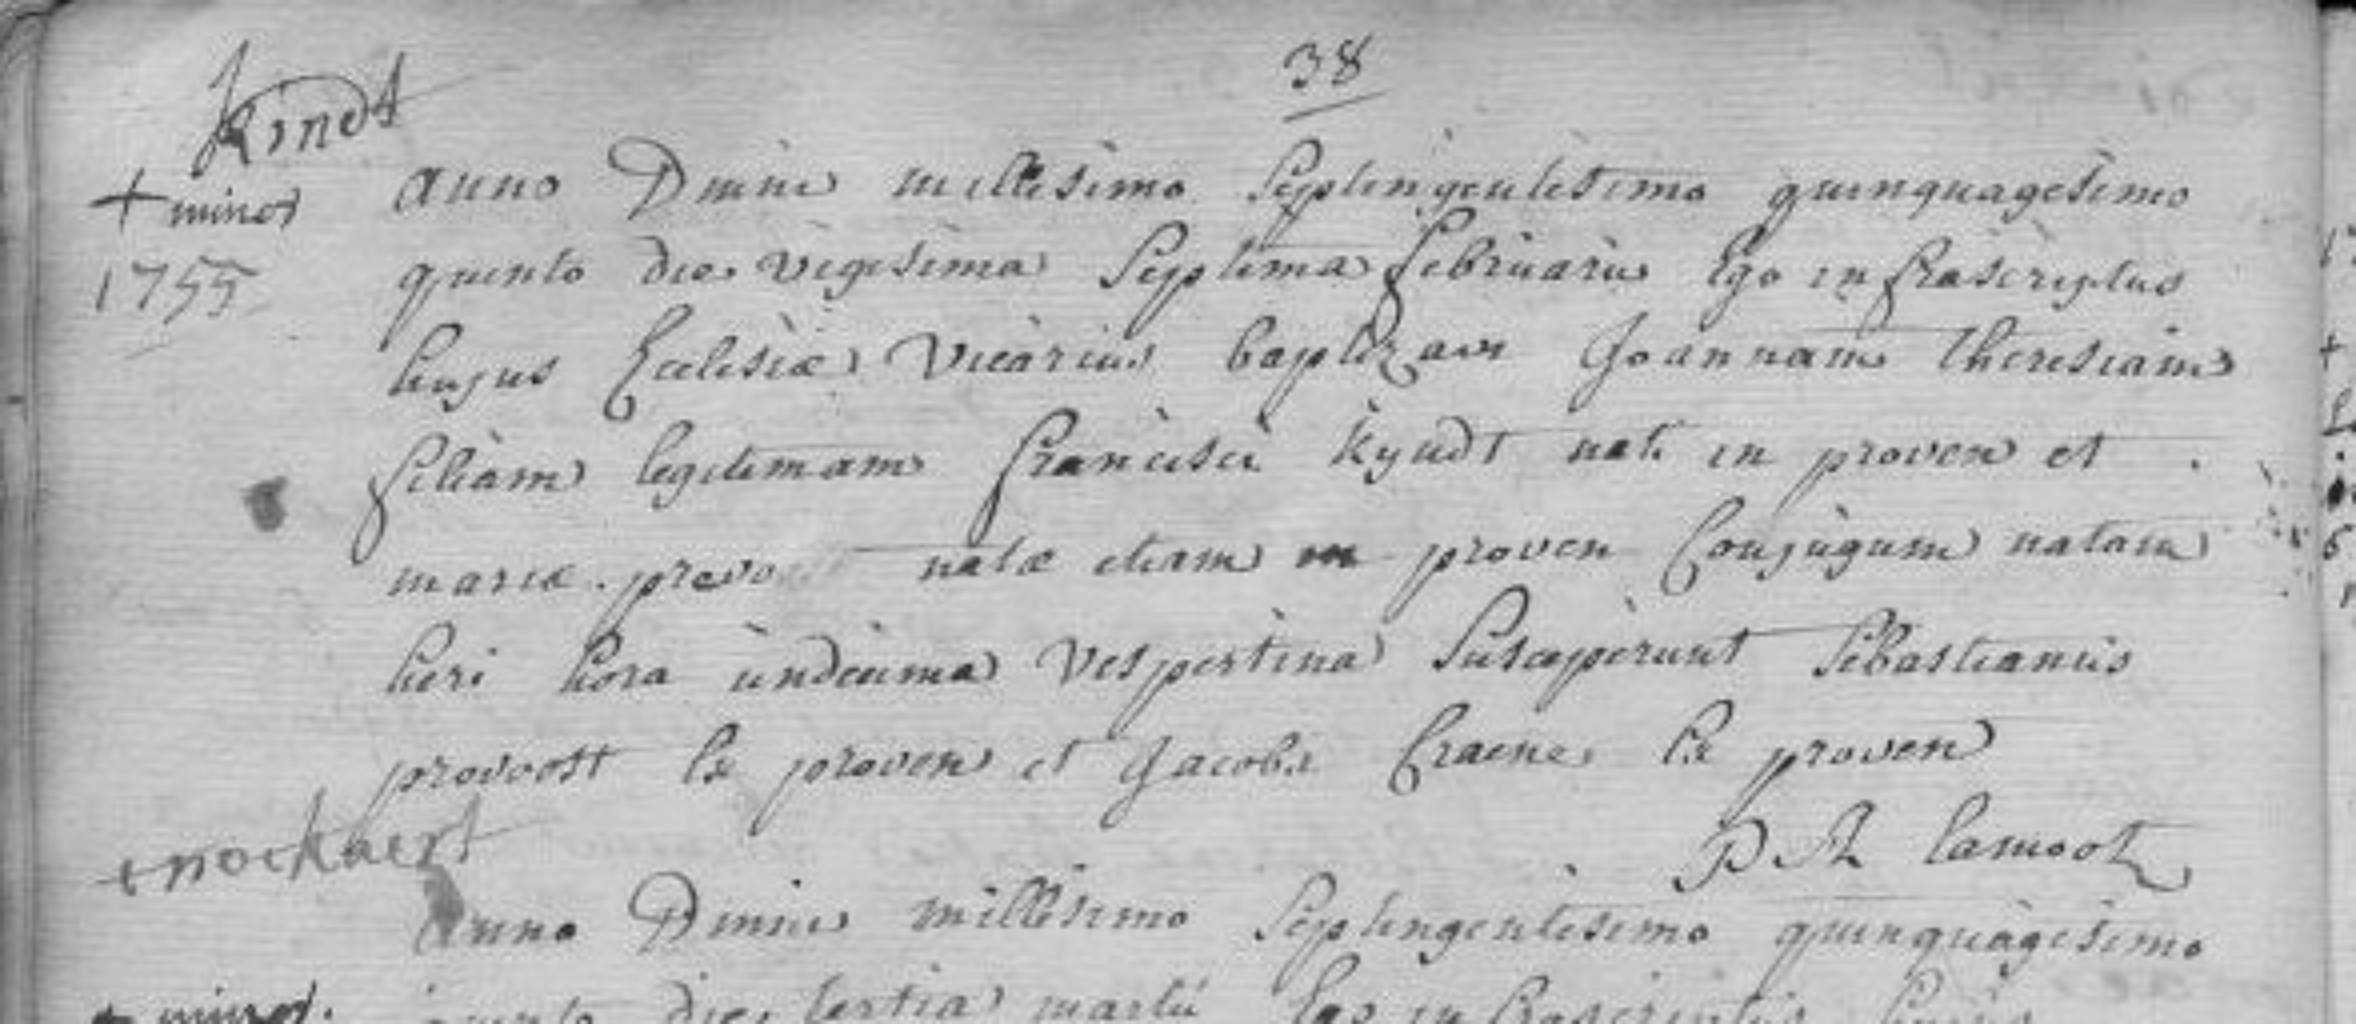 38
Kindt
+ minor
1755
Anno Dmini millesimo septingentesimo quinquagesimo
quinto die vigesima septima februarii Ego infrascriptus
hujus Ecclesiæ vicarius baptizavi Joannam Theresiam
filiam legitimam francisci Kyndt nati in proven et
mariæ . provo natæ etiam in proven Conjugum natam
heri hora undecima vespertina susceperunt Sebastianus
provoost Ex proven et Jacoba Craene Ex proven
P Lamoot
+ nockaert
Anno Dmini millesimo septingentesimo quinquagesimo
+ minor.
quinto die tertia martii Ego infrascriptus hujus